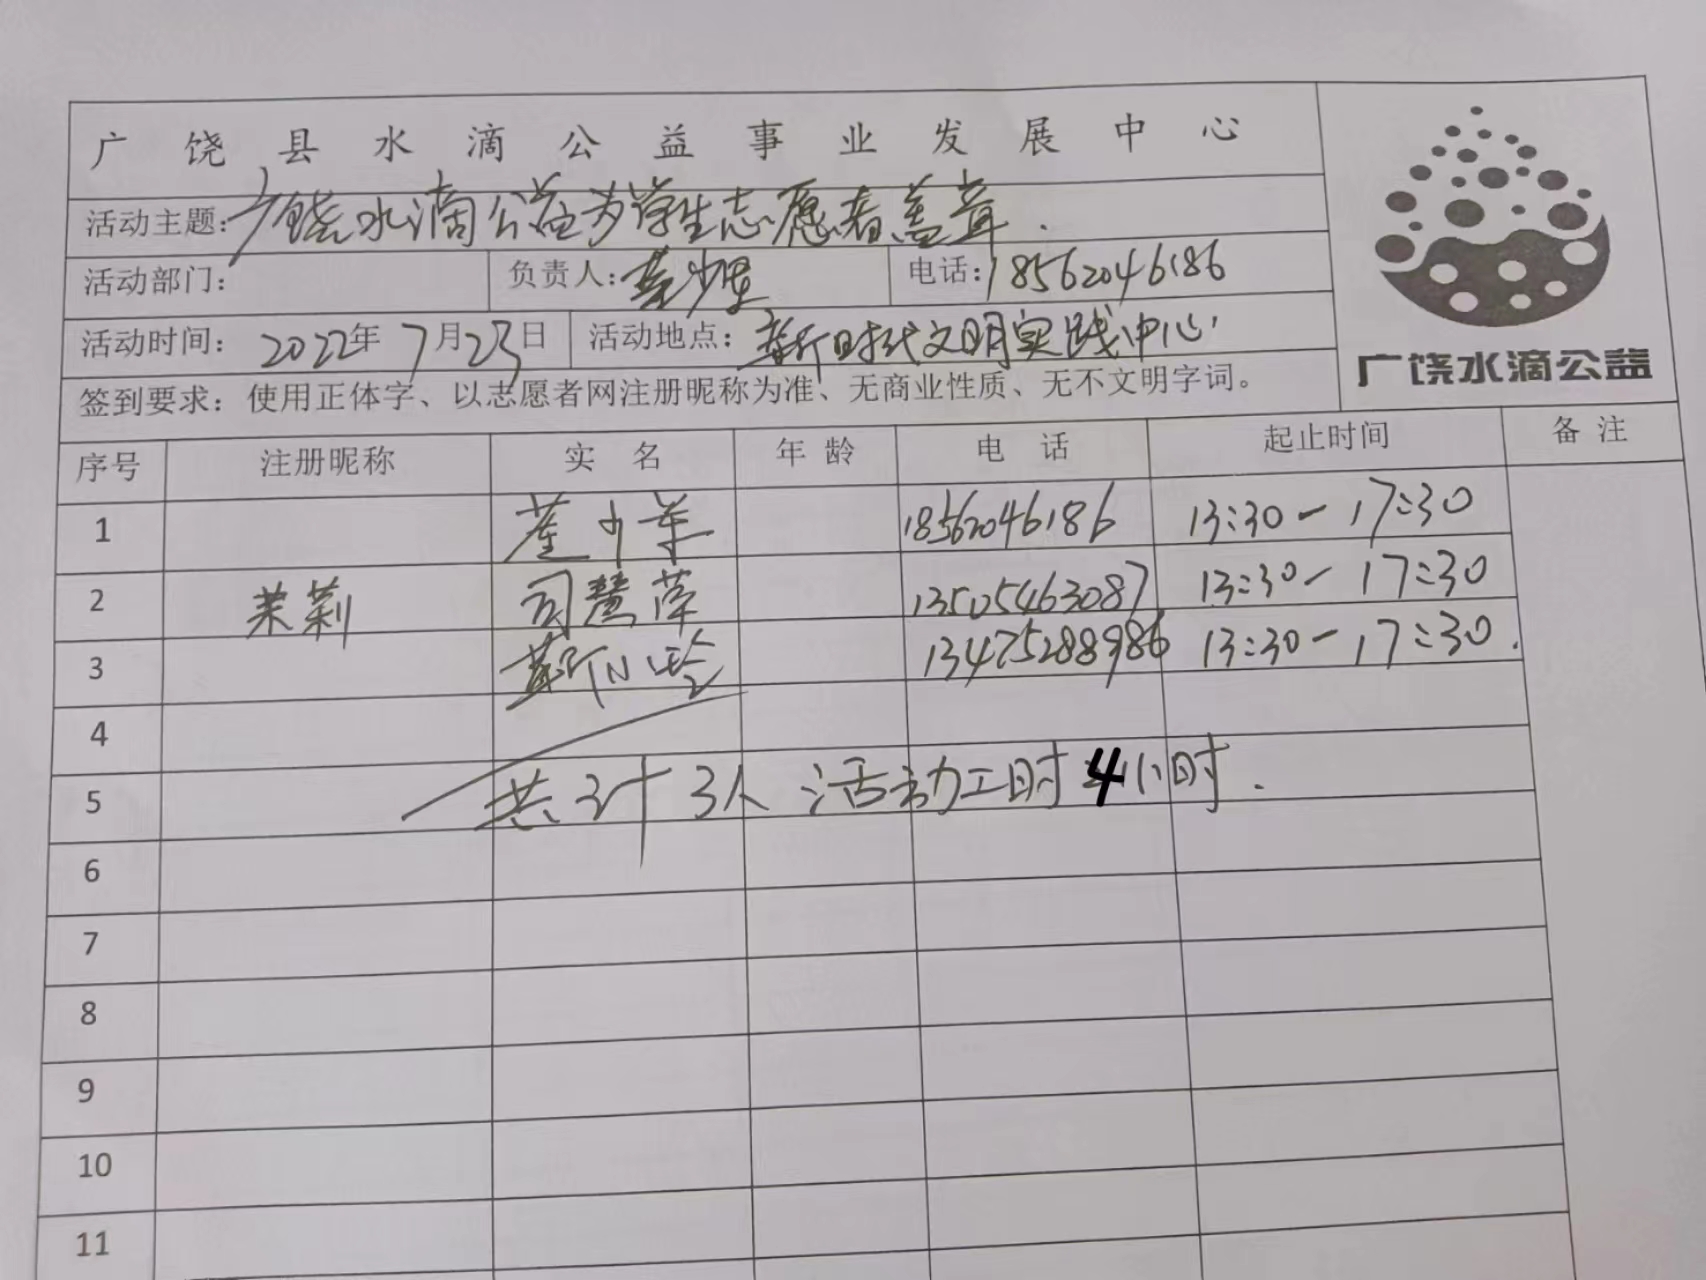 广饶县水滴公益事业发展中心
活动主题:广饶水滴公益为学生志愿者盖章.
活动部门: 负责人: 电话:18562046186
活动时间: 2022年 7月23日 活动地点: 新时代文明实践中心
广饶水滴公益
签到要求:使用正体字、以志愿者网注册昵称为准、无商业性质、无不文明字词。
序号 注册昵称 实名 年龄 电话 起止时间 备注
1 18562046186 13:30-17:30
2 茉莉 司慧萍 13505463087 13:30-17:30
3 13475288986 13:30-17:30.
4
5 共计3人 活动工时4小时.
6
7
8
9
10
11